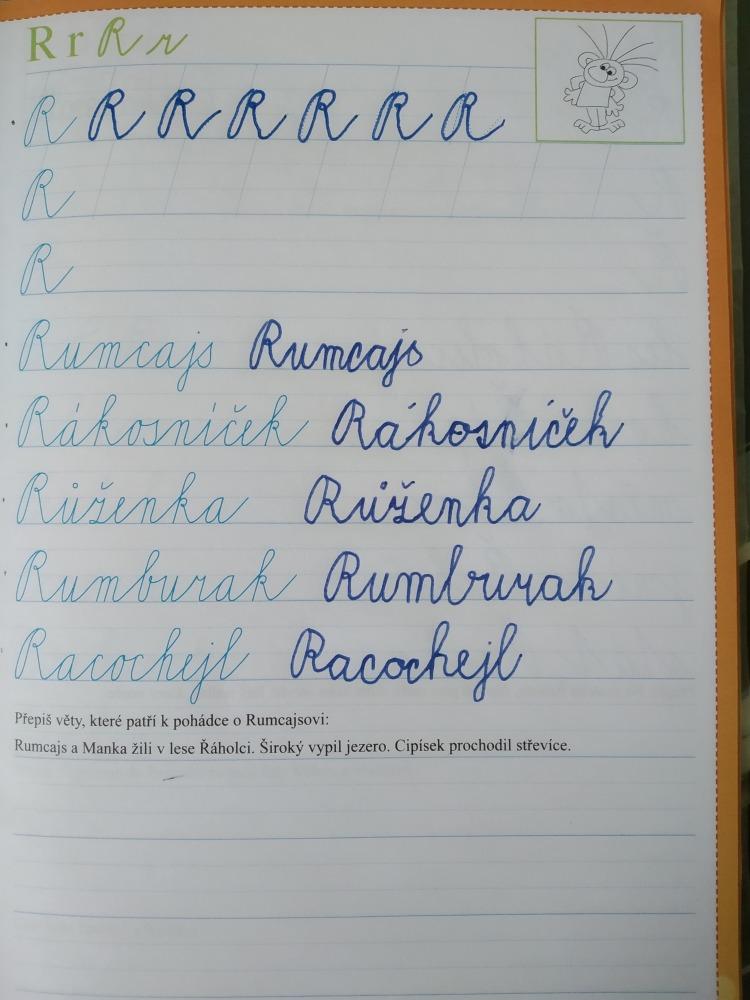 R r R r
R R R R R R R
R
R
Rumcajs Rumcajs
Rákosníček Rákosníček
Růženka Růženka
Rumburak Rumburak
Racochejl Racochejl
Přepiš věty, které patří k pohádce o Rumcajsovi:
Rumcajs a Manka žili v lese Řáholci. Široký vypil jezero. Cipísek prochodil střevíce.